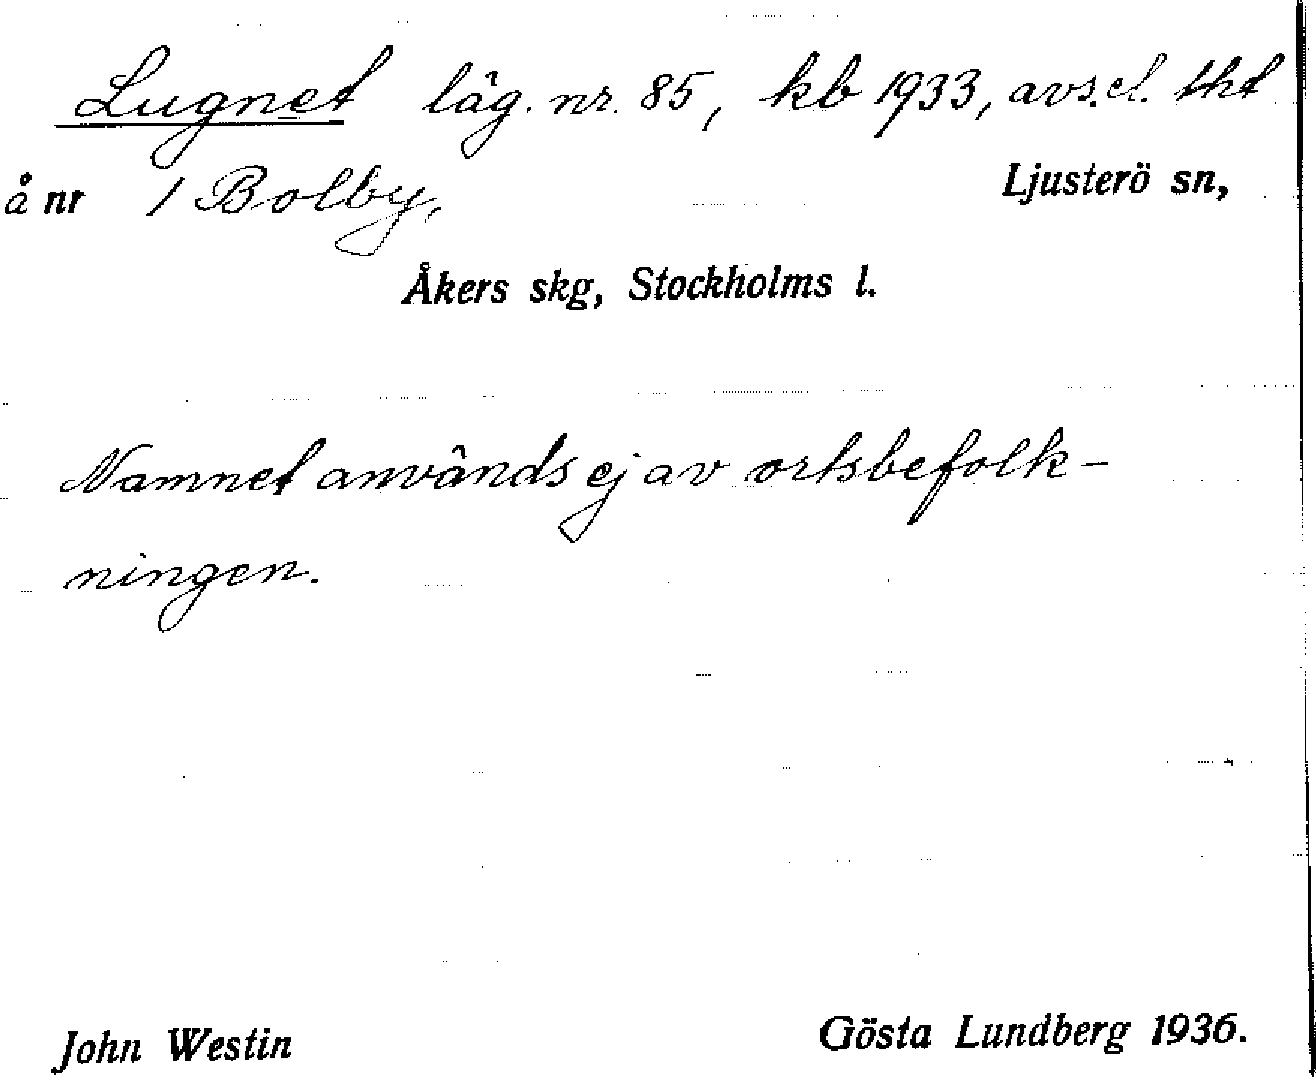 Lugnet läg. nr. 85, kb 1933, avs. el. tht
å nr 1 Bolby, Ljusterö sn,
Åkers skg, Stockholms l.
Namnet används ej av ortsbefolk-
ningen.
John Westin Gösta Lundberg 1936.